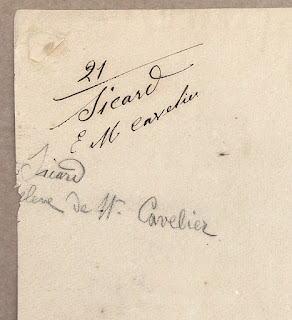 21
Sicard
E M Cavelier
Sicard
eleve de Mr. Cavelier